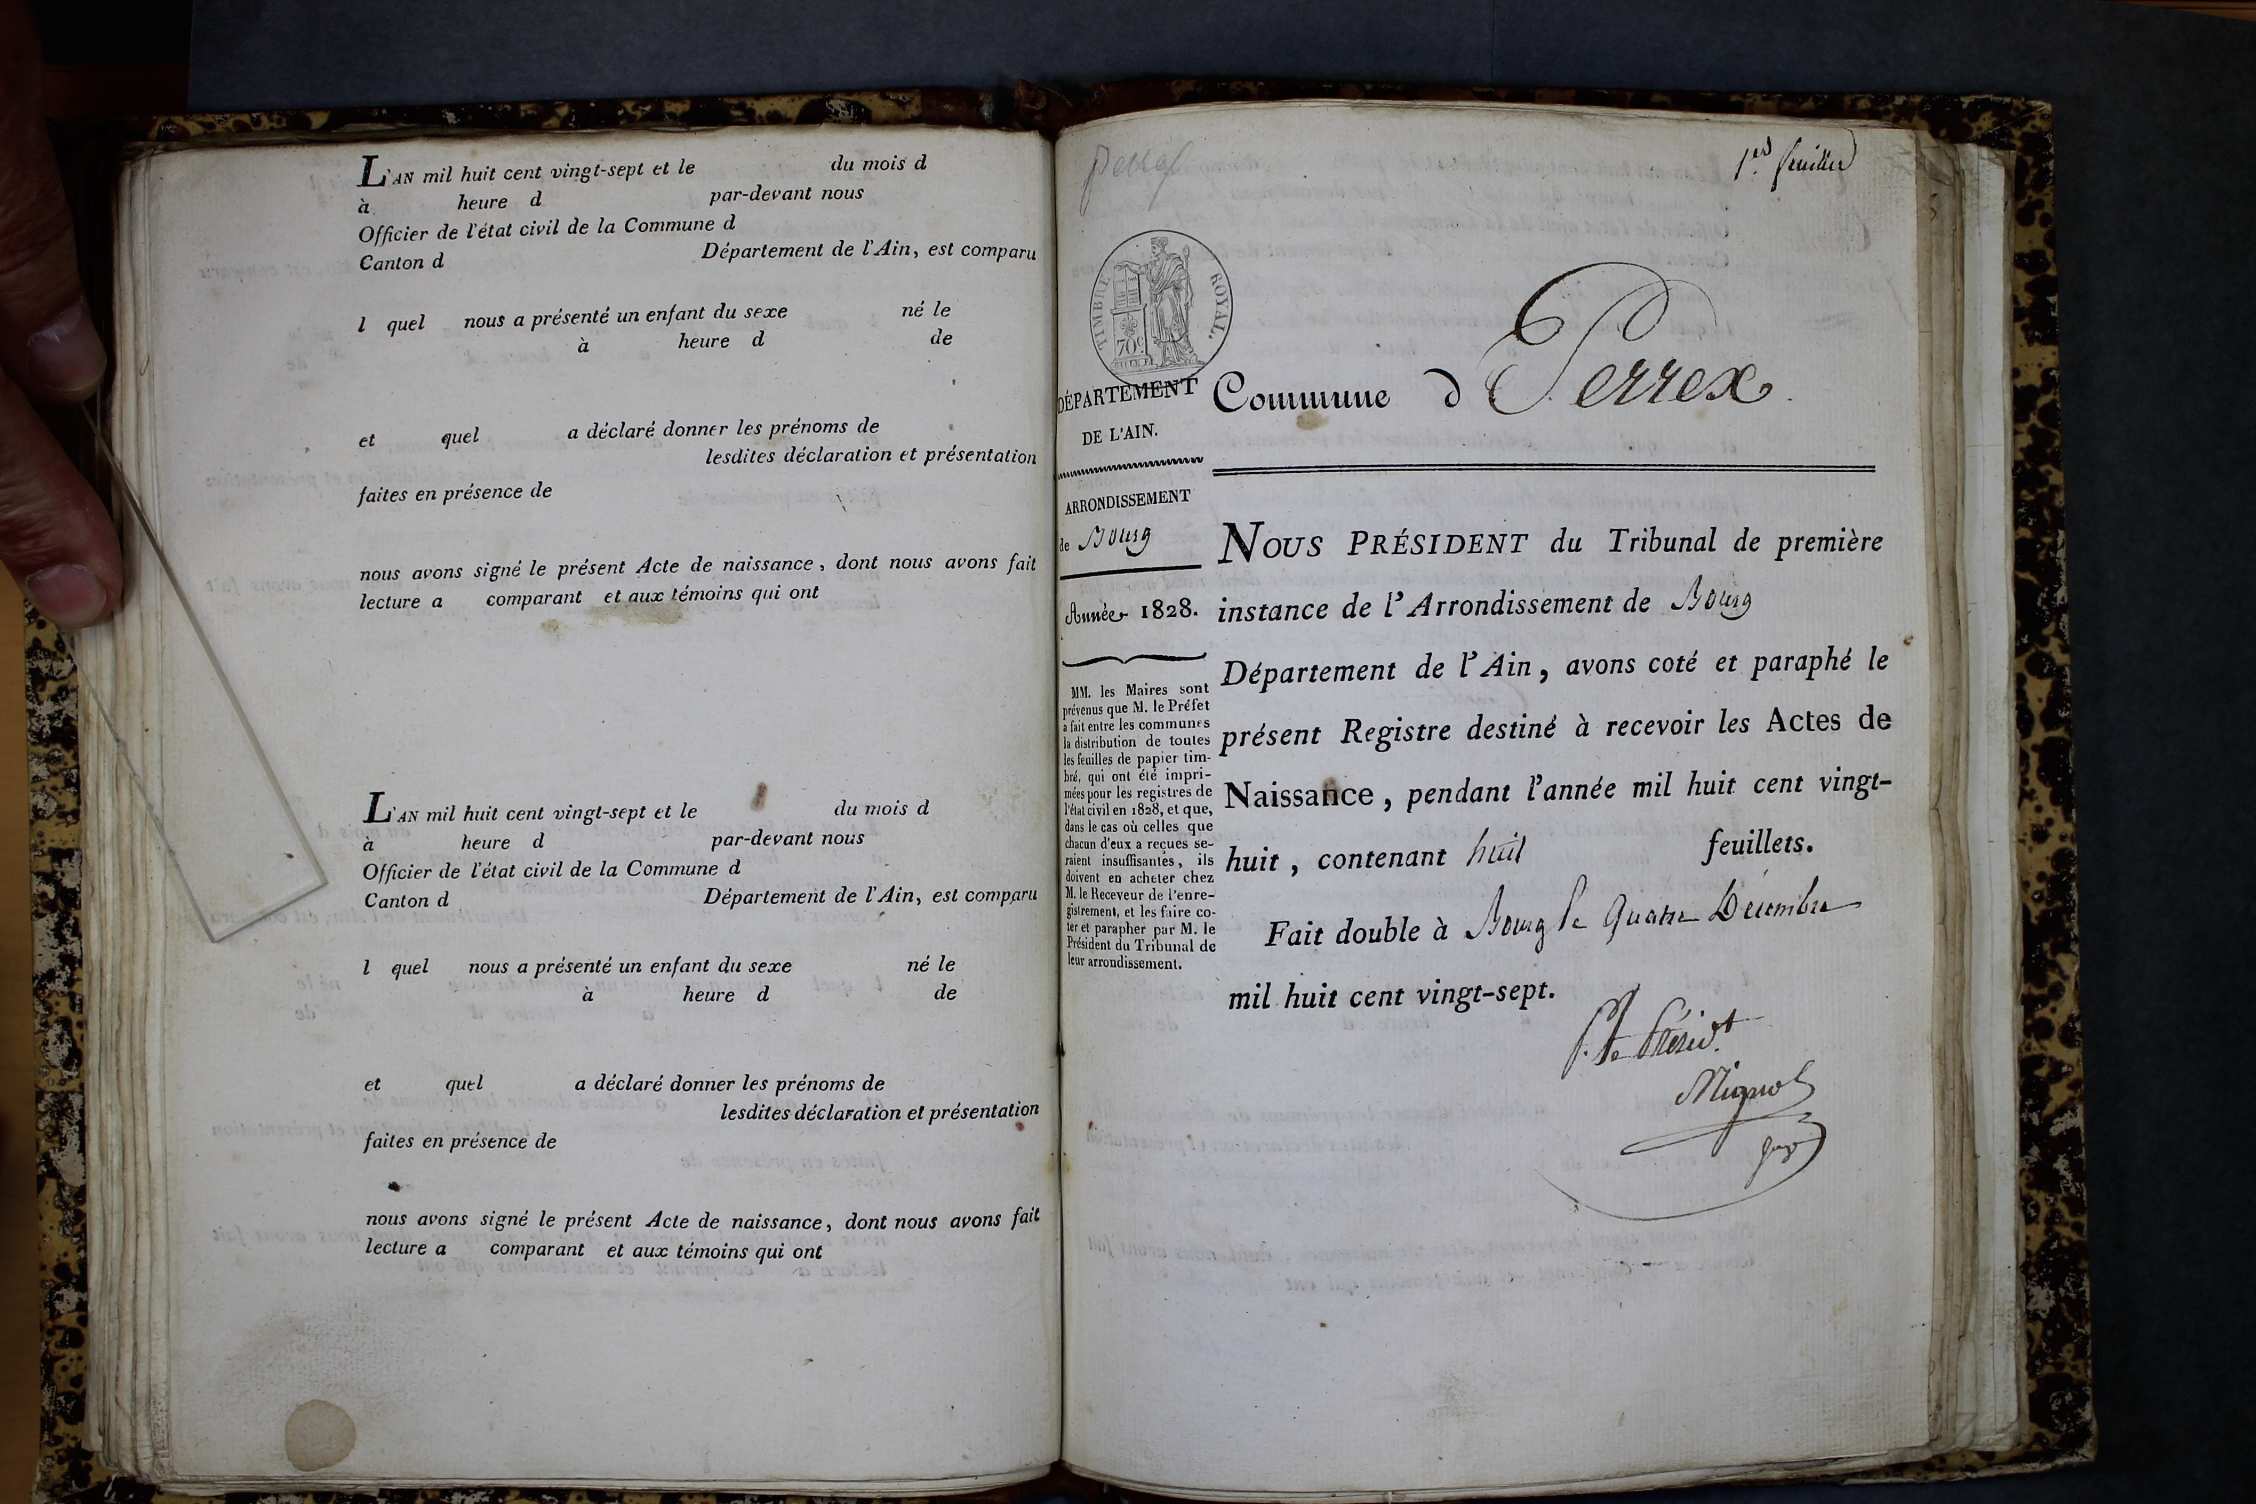 L'AN mil huit cent vingt-sept et le du mois d
à heure d par-devant nous
Officier de l'état civil de la Commune d
Canton d Département de l'Ain, est comparu
l quel nous a présenté un enfant du sexe né le
à heure d de
et quel a déclaré donner les prénoms de
lesdites déclaration et présentation
faites en présence de
nous avons signé le présent Acte de naissance, dont nous avons fait
lecture a comparant et aux témoins qui ont
L'AN mil huit cent vingt-sept et le du mois d
à heure d par-devant nous
Officier de l'état civil de la Commune d
Canton d Département de l'Ain, est comparu
l quel nous a présenté un enfant du sexe né le
à heure d de
et quel a déclaré donner les prénoms de
lesdites déclaration et présentation
faites en présence de
nous avons signé le présent Acte de naissance, dont nous avons fait
lecture a comparant et aux témoins qui ont
1.er feuillet
TIMBRE ROYAL.
70c
DÉPARTEMENT
DE L'AIN.
ARRONDISSEMENT
de Bourg
Année 1828.
MM. les Maires sont
prévenus que M. le Préfet
a fait entre les communes
la distribution de toutes
les feuilles de papier tim-
bré, qui ont été impri-
mées pour les registres de
l'état civil en 1828, et que,
dans le cas où celles que
chacun d'eux a reçues se-
raient insuffisantes, ils
doivent en acheter chez
M. le Receveur de l'enre-
gistrement, et les faire co-
ter et parapher par M. le
Président du Tribunal de
leur arrondissement.
Commune d Perrex
NOUS PRÉSIDENT du Tribunal de première
instance de l'Arrondissement de Bourg
Département de l'Ain, avons coté et paraphé le
présent Registre destiné à recevoir les Actes de
Naissance, pendant l'année mil huit cent vingt-
huit, contenant huit feuillets.
Fait double à Bourg le quatre Décembre
mil huit cent vingt-sept.
P. le Présid.t